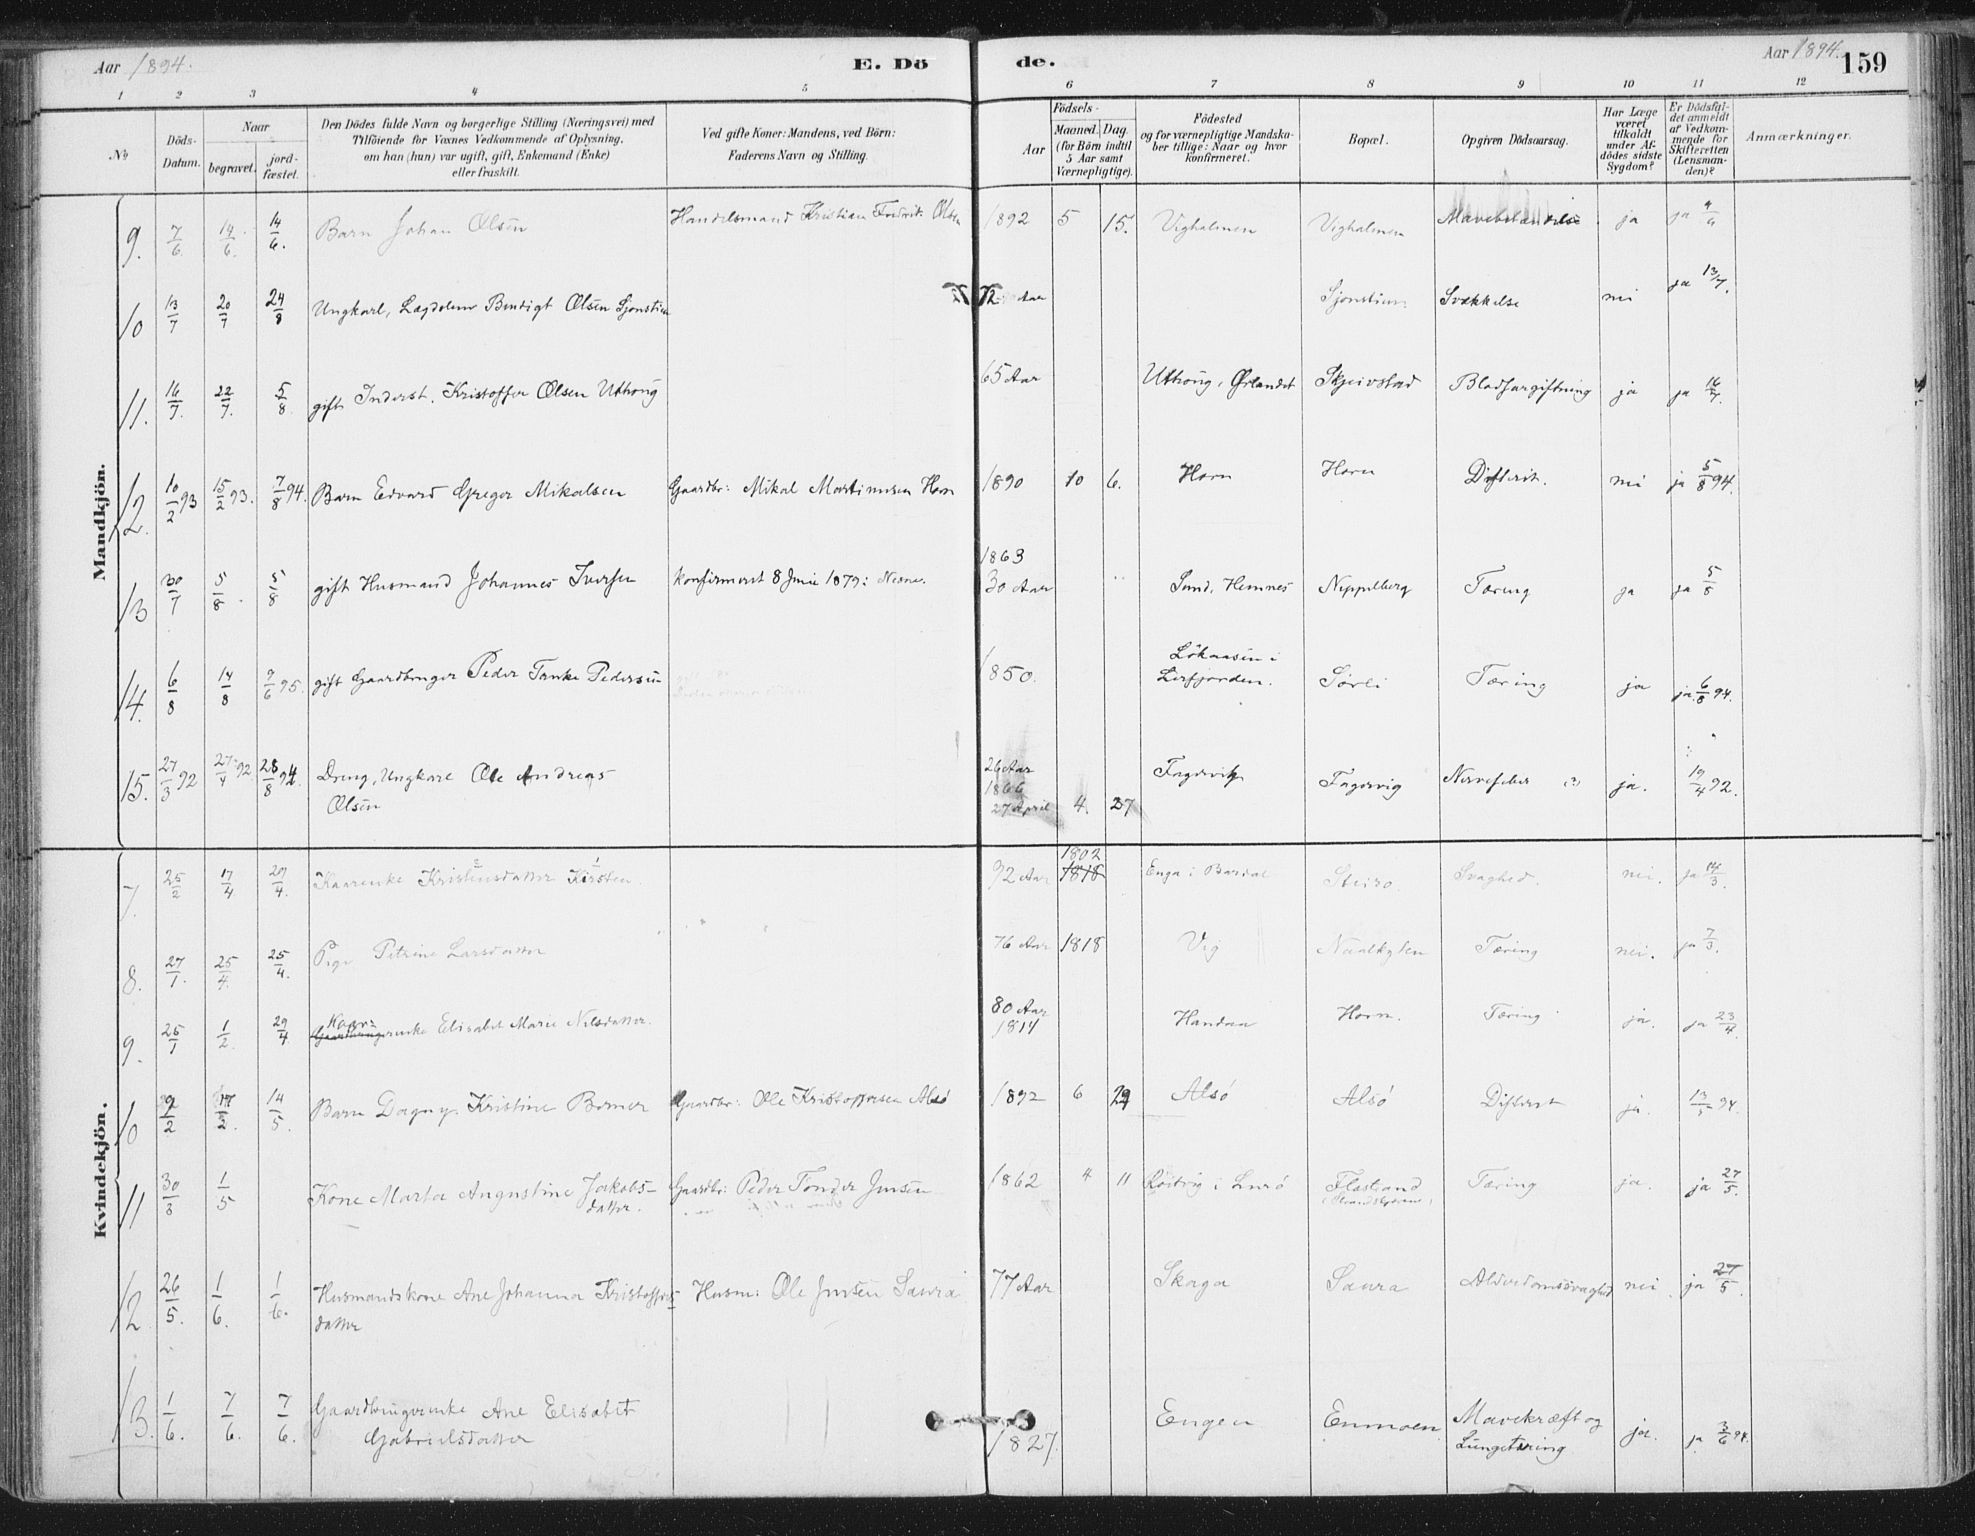 Aar 1894. E. Döde. Aar 1894. 159
1 2 3 4 5 6 7 8 9 10 11 12
№ Döds-Datum. Naar begravet. jordfæstet. Den Dödes fulde Navn og borgerlige Stilling (Næringsvei) med Tilföiende for Voxnes Vedkommende af Oplysning, om han (hun) var ugift, gift, Enkemand (Enke) eller fraskilt. Ved gifte Koner: Mandens, ved Börn: Faderens Navn og Stilling. Födsels- Aar Maaned. Dag. (for Börn indtil 5 Aar samt Værnepligtige). Födested og for værnepligtige Mandskaber tillige: Naar og hvor konfirmeret. Bopæl. Opgiven Dödsaarsag. Har Læge været tilkaldt under Afdödes sidste Sygdom? Er Dödsfaldet anmeldt af Vedkommende for Skifteretten (Lensmanden)? Anmærkninger.
Mandkjön.
9. 7/6 14/6. 14/6. Barn Johan Olsen Handelsmand Kristian Fredrik Olsen 1892 5 15. Vigholmen Vigholmen Mavebetændelse ja ja 9/6
10 13/7 20/7 24/8 Ungkarl, Lægdslem Bendigt Olsen Sjonstien 72 Aar Sjonstien Svækkelse nei ja 13/7.
11. 16/7. 22/7. 5/8. gift Inderst. Kristoffer Olsen Uthoug 65 Aar Uthoug, Ørlandet Skjeivstad Blodforgiftning ja ja 16/7.
12. 10/2 93 15/2 93. 7/8 94. Barn Edvard Greger Mikalsen Gaardbr: Mikal Martinusen Horn 1890 10 6. Horn Horn Difterit. nei ja 5/8 94.
13 30/7 5/8. 5/8 gift Husmand Johannes Iversen konfirmeret 8 Juni 1879: Nesne. 1863 30 Aar Sund, Hemnes Nippelberg Tæring ja ja 5/8
14. 6/8 14/8 9/6 95. gift Gaardbruger Peder Tanke Pedersen 1850. Løkaasen i Leirfjorden. Sørli Tæring ja ja 6/8 94.
15. 27/3 92 27/4 92 28/8 94 Dreng, Ungkarl Ole Andreas Olsen 26 Aar 1866 27 April 4. 27 Fagervik Fagervig Nervefeber (?) ja. 19/4 92.
Kvindekjön.
7. 25/2 17/4 29/4. Kaarenke Kristensdatter Kirsten 92 Aar 1802 1818 Enga i Bardal Steiro. Svaghed. nei. ja 14/3.
8. 27/1. 25/4. 25/4. Pige Petrine Larsdatter 76 Aar 1818 Vig Naalkyten Tæring nei. ja 7/3.
9. 25/1 1/2. 29/4 Kaarenke Elisabet Marie Nilsdatter. 80 Aar 1814 Handaa Horn. Tæring ja. ja 23/4.
10 9/2 17/2. 14/5. Barn Dagny Kristine Bomer Gaardbr: Ole Kristoffersen Alsø 1892 6 29 Alsø Alsø Difterit ja. 13/5 94.
11 30/3 1/5 Kone Marta Augustine Jakobsdatter. Gaardbr: Peder Tønder Jensen 1862 4 11 Røitvig i Lurø Flostrand Tæring ja. ja 27/5.
12. 26/5. 1/6. 1/6. Husmandskone Ane Johanna Kristoffersdatter Husm: Ole Jensen Saura 77 Aar Skaga Saura Alderdomssvaghed nei. ja 27/5.
13. 1/6. 7/6. 7/6. Gaardbrugerenke Ane Elisabet Gabrielsdatter 1827. Engen Enmoen Mavekræft og Lungetæring ja. ja 3/6 94.